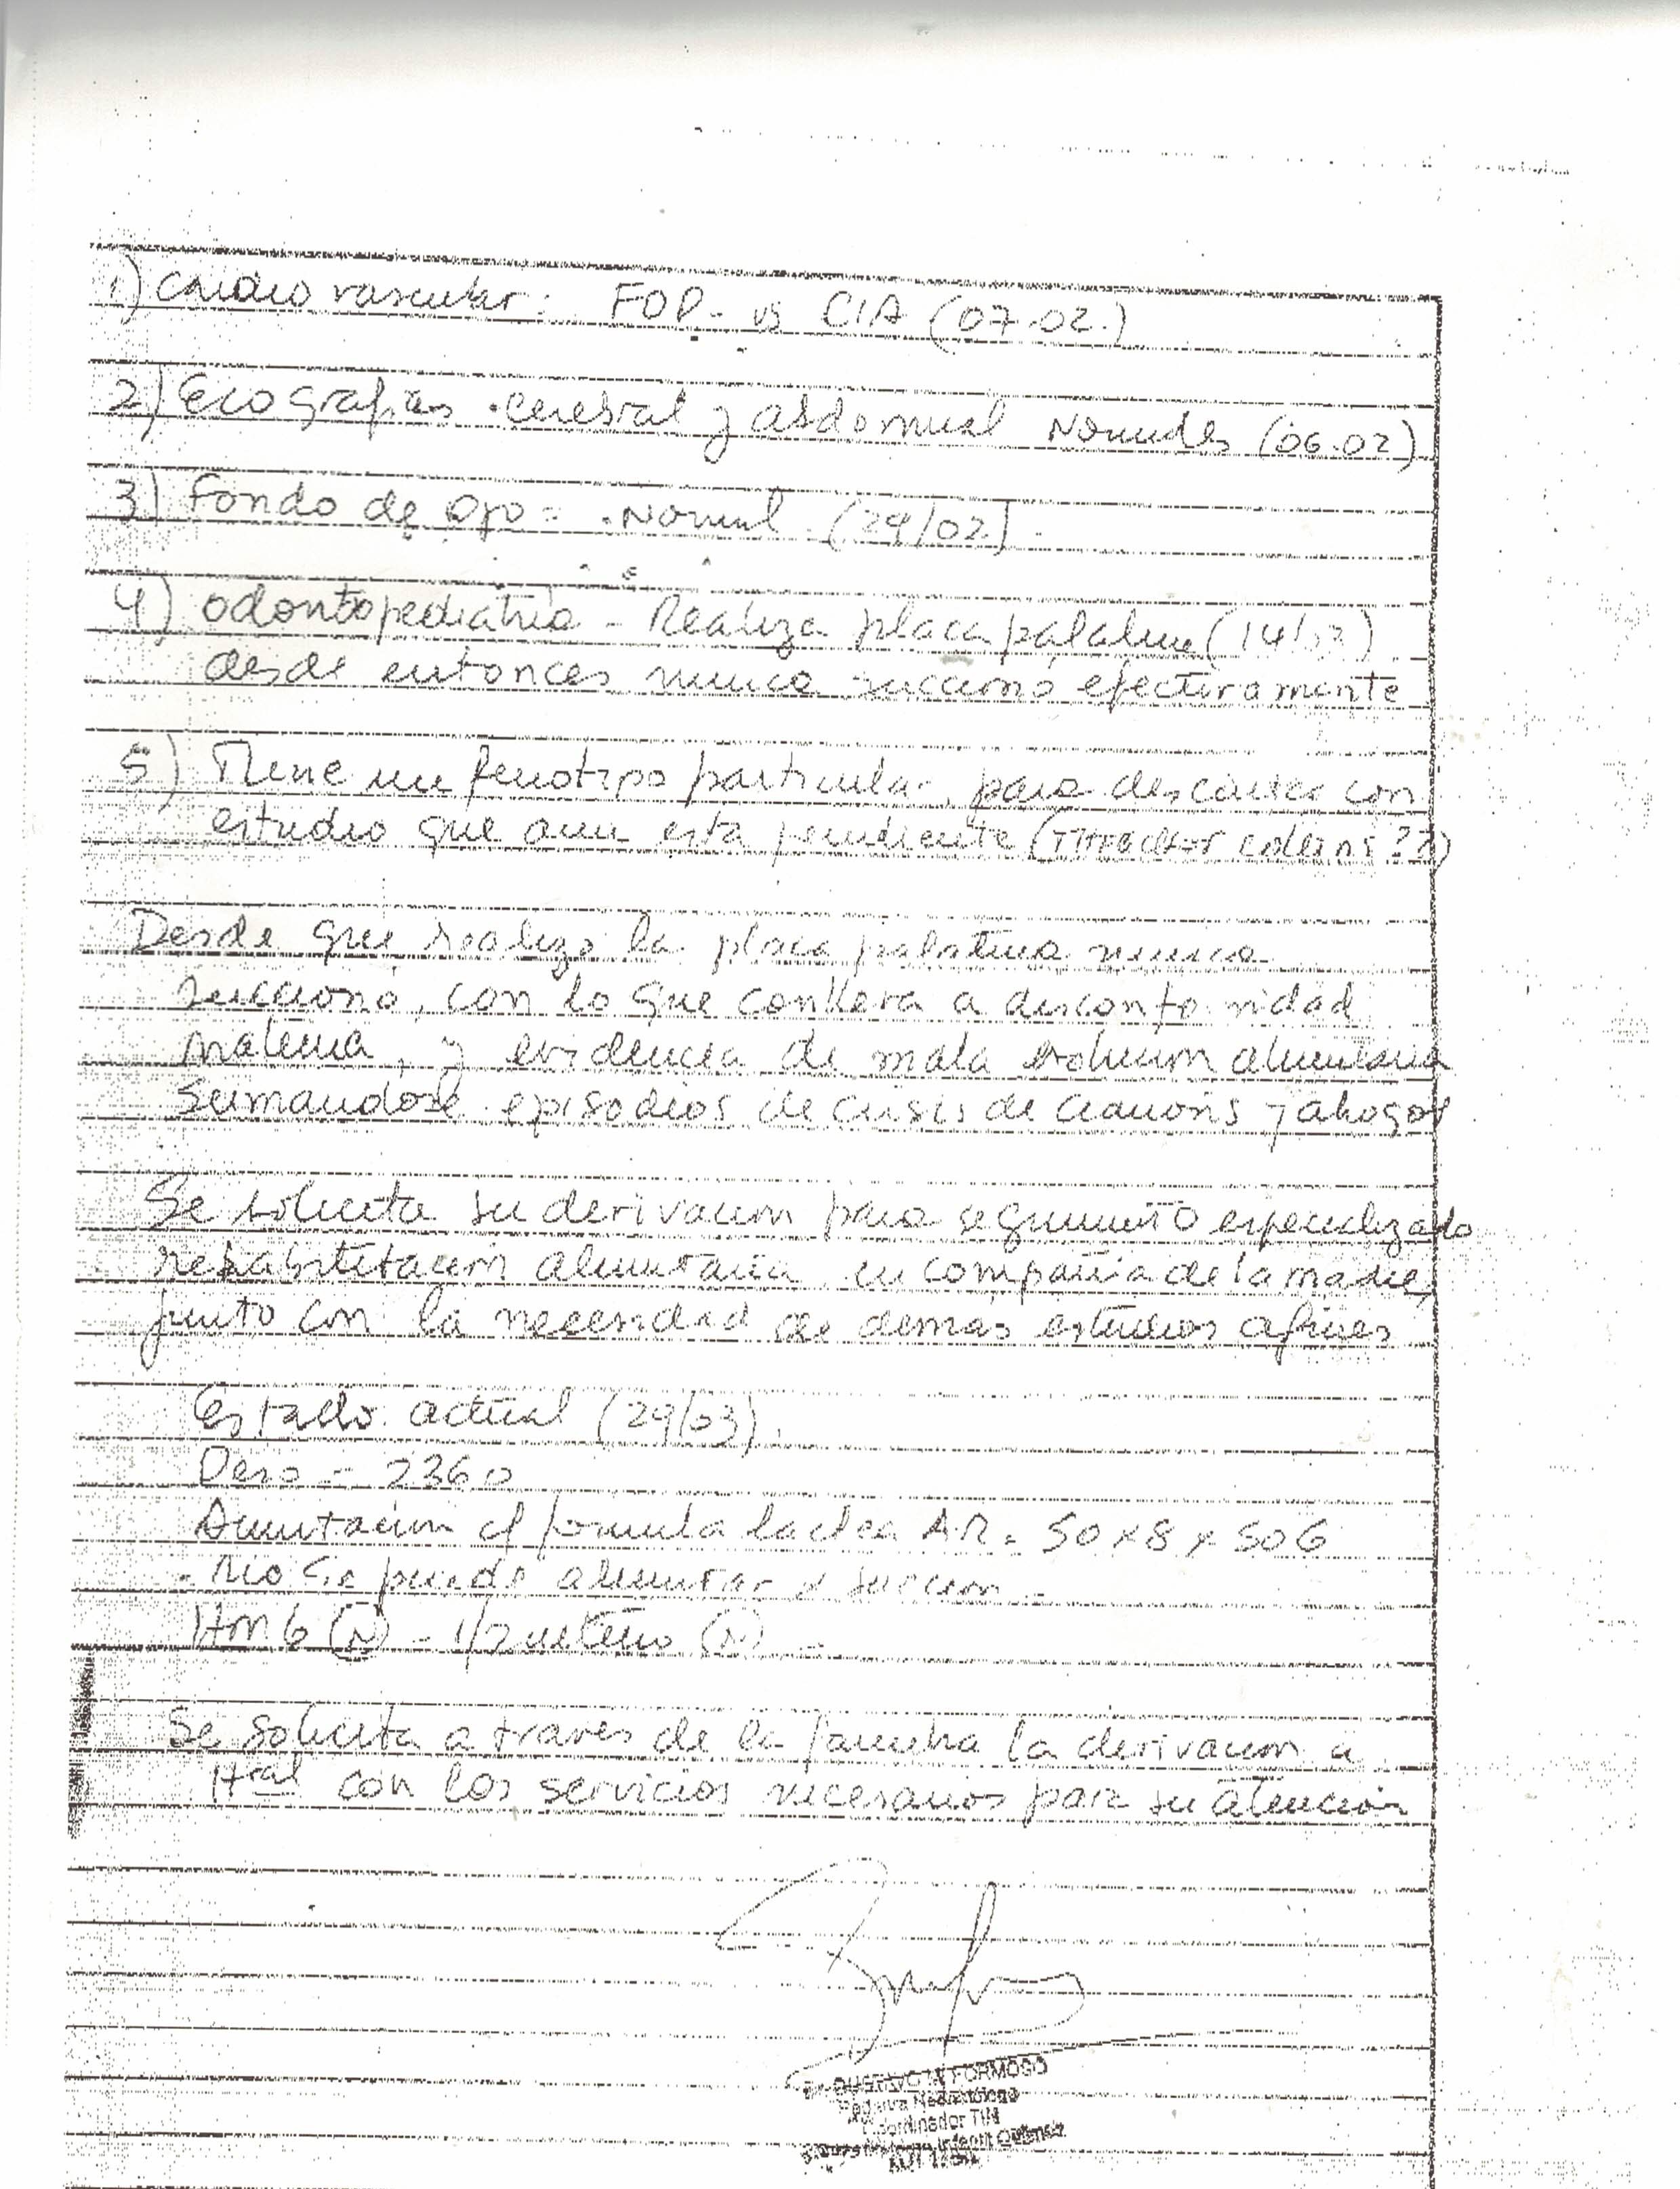 1) Cardiovascular: FOP - vs CIA (07.02.)
2) Ecografias cerebral y abdominal Normales (06.02)
3) Fondo de Ojo = Normal (29/02)
4) odontopediatria - Realiza placa palatina (14/
desde entonces nunca succiono efectivamente
5) Tiene un fenotipo particular para descartar con
estudio que aun esta pendiente ( collins??)
Desde que realizo la placa palatina nunca
succiono, con lo que conlleva a disconformidad
materna, y evidencia de mala alimentaria
sumandose episodios de crisis de cianosis y ahogos
Se solicita su derivacion para seguimiento especializado
rehabilitacion alimentaria en compañia de la madre,
junto con la necesidad de demas estudios afines
Estado actual (29/03)
Peso = 2360
c/ formula lactea AR = 50 x 8 x SOG
No se puede alimentar x succion -
(N) - (N) -
Se solicita a traves de la familia la derivacion a
Htal con los servicios necesarios para su atencion
GUSTAVO FORMOSO
Neonatologo